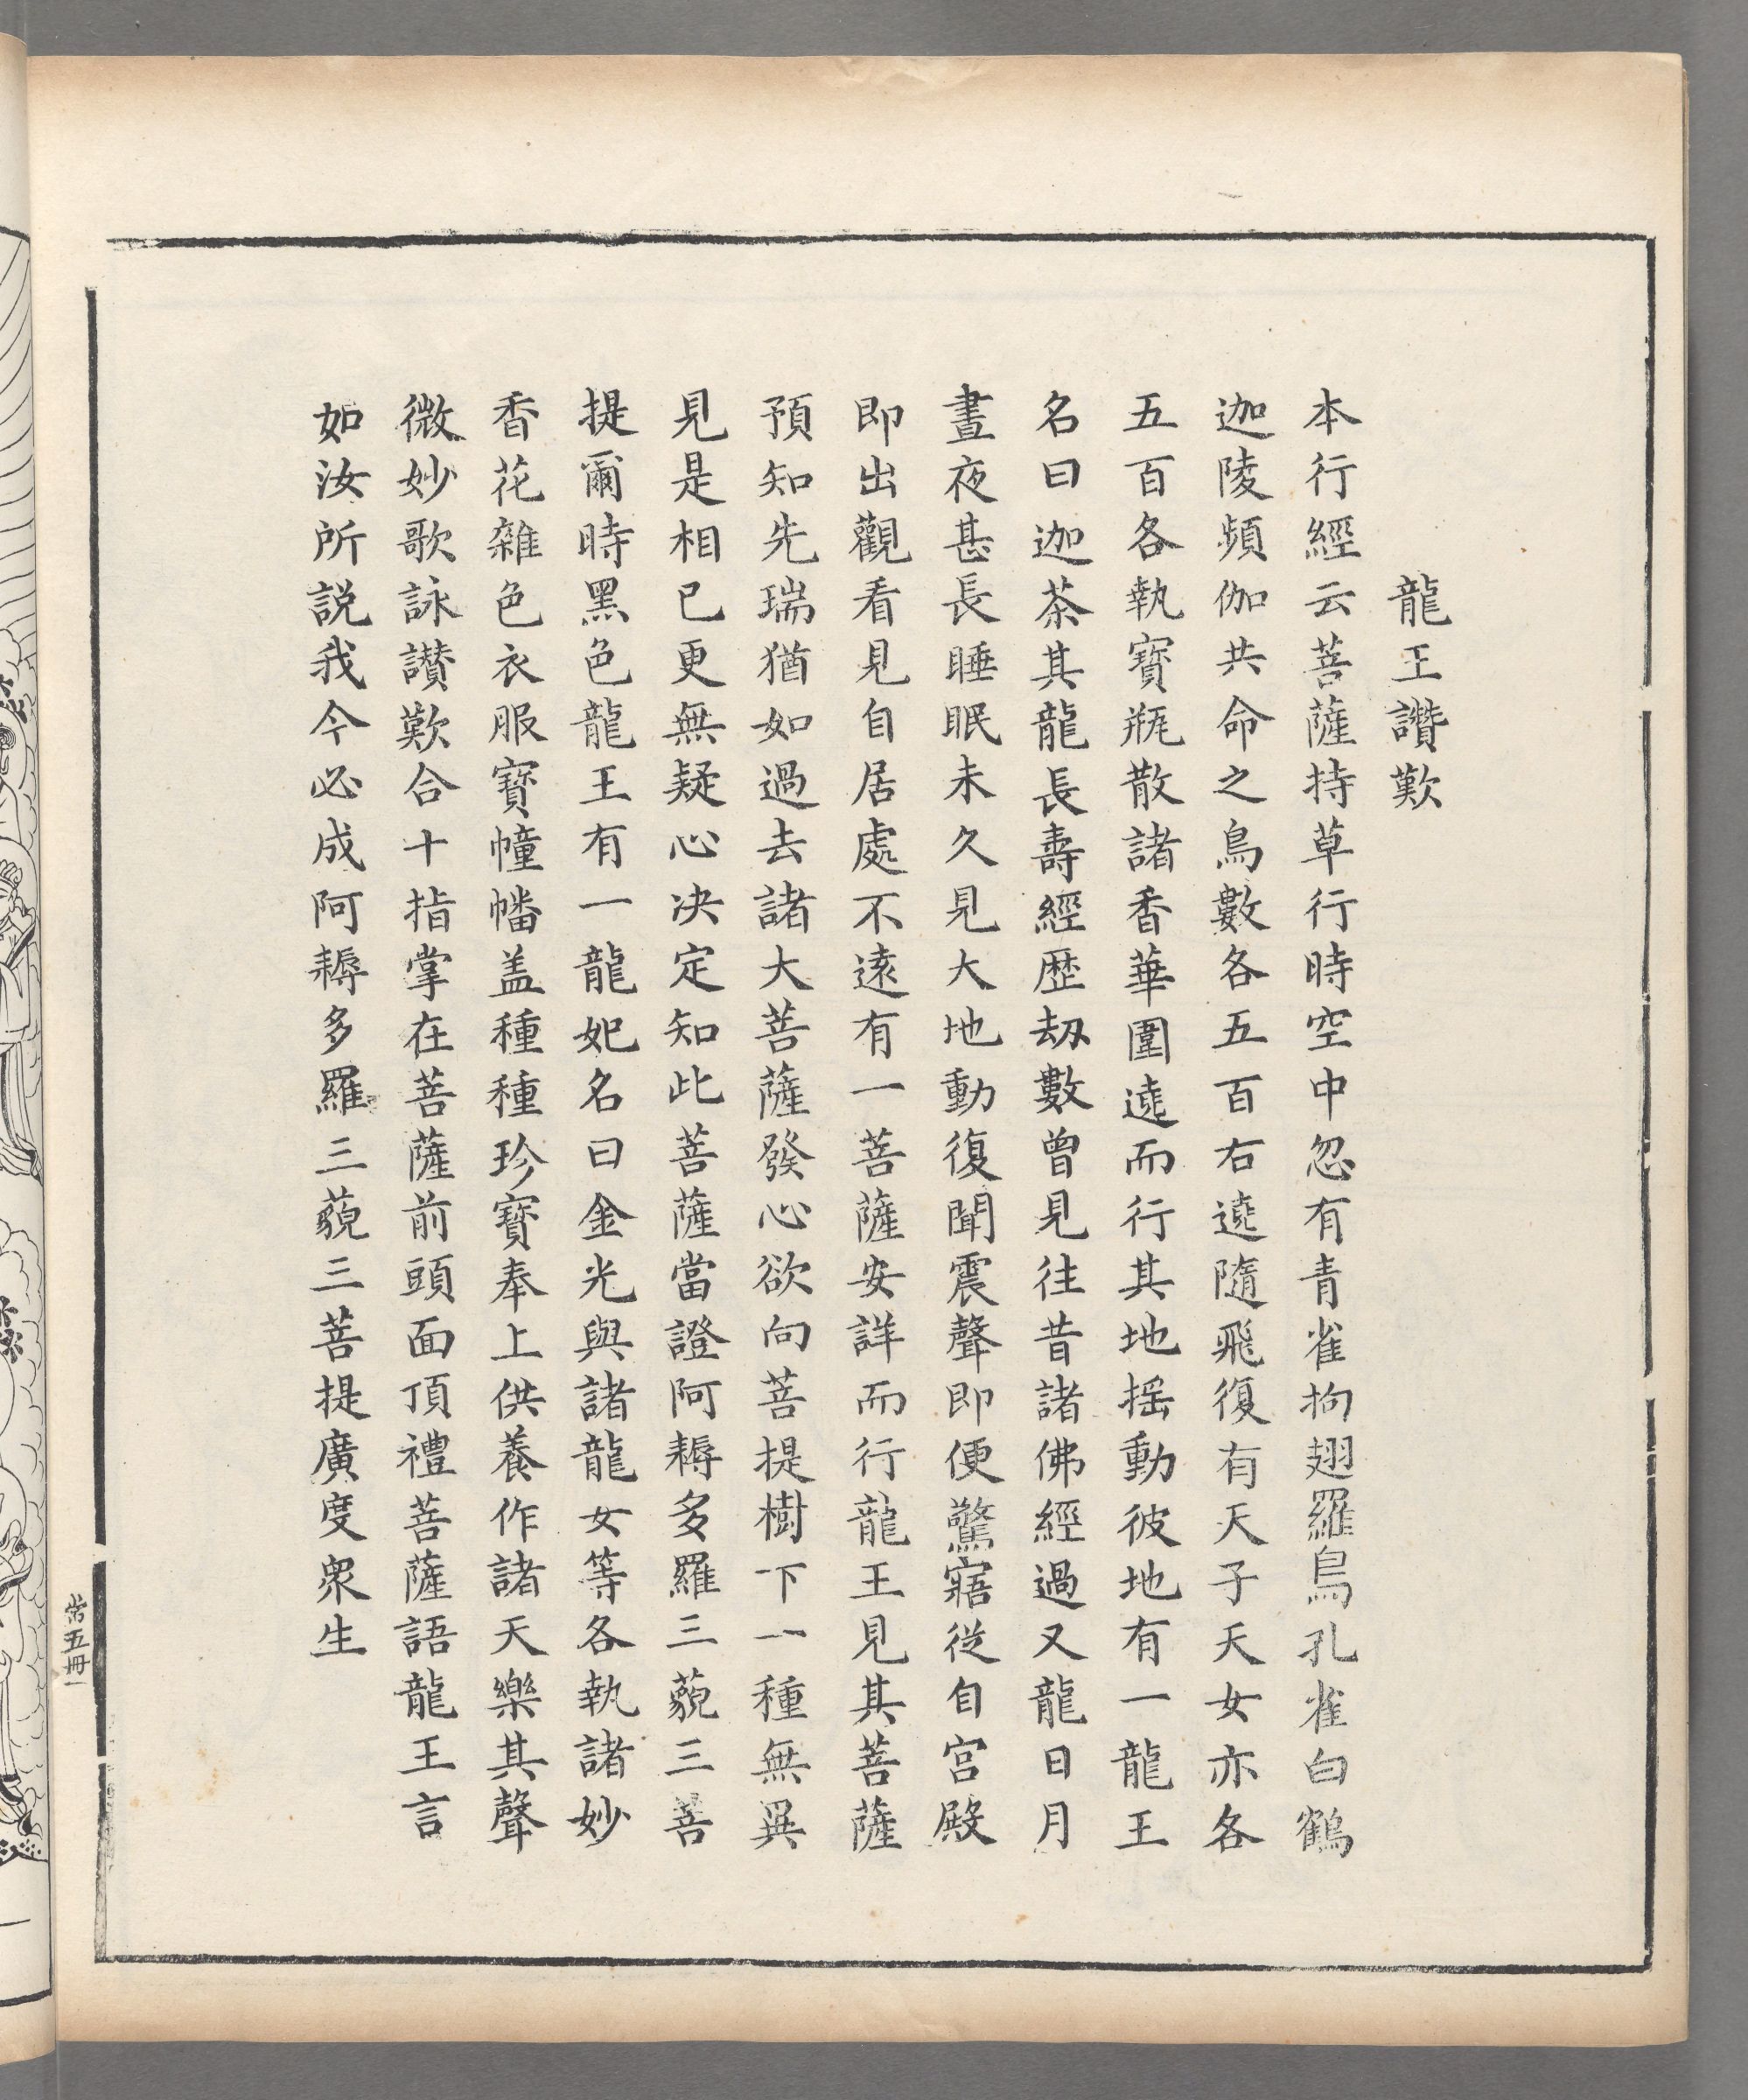 龍王讚歎
本行經云菩薩持草行時空中忽有青雀拘翅羅鳥孔雀白鶴
迦陵頻伽共命之鳥數各五百右遶隨飛復有天子天女亦各
五百各執寶瓶散諸香華圍遶而行其地搖動彼地有一龍王
名曰迦茶其龍長壽經歷劫數曾見往昔諸佛經過又龍日月
晝夜甚長睡眠未久見大地動復聞震聲即便驚寤從自宮殿
即出觀看見自居處不遠有一菩薩安詳而行龍王見其菩薩
預知先瑞猶如過去諸大菩薩發心欲向菩提樹下一種無異
見是相已更無疑心決定知此菩薩當證阿耨多羅三藐三菩
提爾時黑色龍王有一龍妃名曰金光與諸龍女等各執諸妙
香花雜色衣服寶幢幡盖種種珍寶奉上供養作諸天樂其聲
微妙歌詠讚歎合十指掌在菩薩前頭面頂禮菩薩語龍王言
如汝所説我今必成阿耨多羅三藐三菩提廣度衆生
五冊一